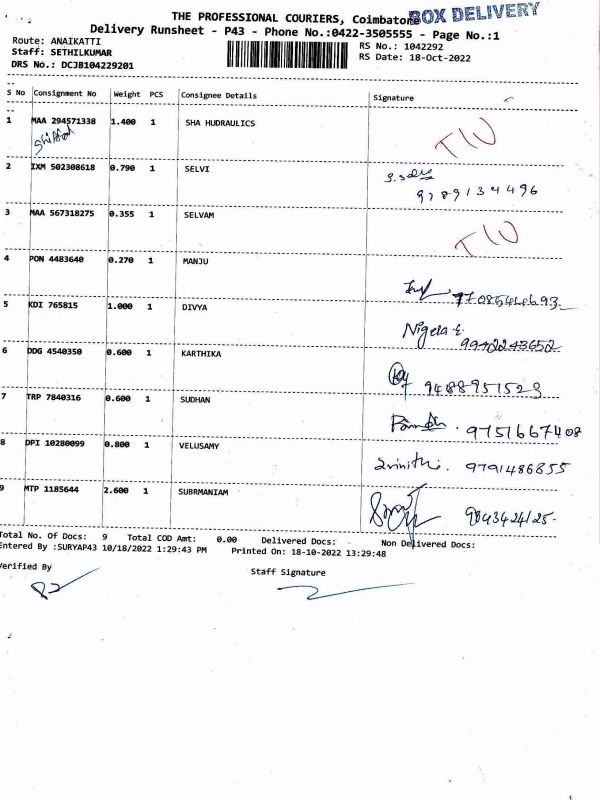 THE PROFESSIONAL COURIERS, Coimbatore BOX DELIVERY
Delivery Runsheet - P43 - Phone No.:0422-3505555 - Page No.:1
Route: ANAIKATTI RS No.: 1042292
Staff: SETHILKUMAR RS Date: 18-Oct-2022
DRS No.: DCJB104229201
S No Consignment No Weight PCS Consignee Details Signature
1 MAA 294571338 1.400 1 SHA HUDRAULICS
2 IXM 502308618 0.790 1 SELVI
9789134496
3 MAA 567318275 0.355 1 SELVAM
4 PON 4483640 0.270 1 MANJU
5 KDI 765815 1.000 1 DIVYA
6 DDG 4540350 0.600 1 KARTHIKA
9488951523
7 TRP 7840316 0.600 1 SUDHAN
9751667408
8 DPI 10280099 0.800 1 VELUSAMY
9791486855
9 MTP 1185644 2.600 1 SUBRMANIAM
Total No. Of Docs: 9 Total COD Amt: 0.00 Delivered Docs: Non Delivered Docs:
Entered By :SURYAP43 10/18/2022 1:29:43 PM Printed On: 18-10-2022 13:29:48
Verified By
Staff Signature